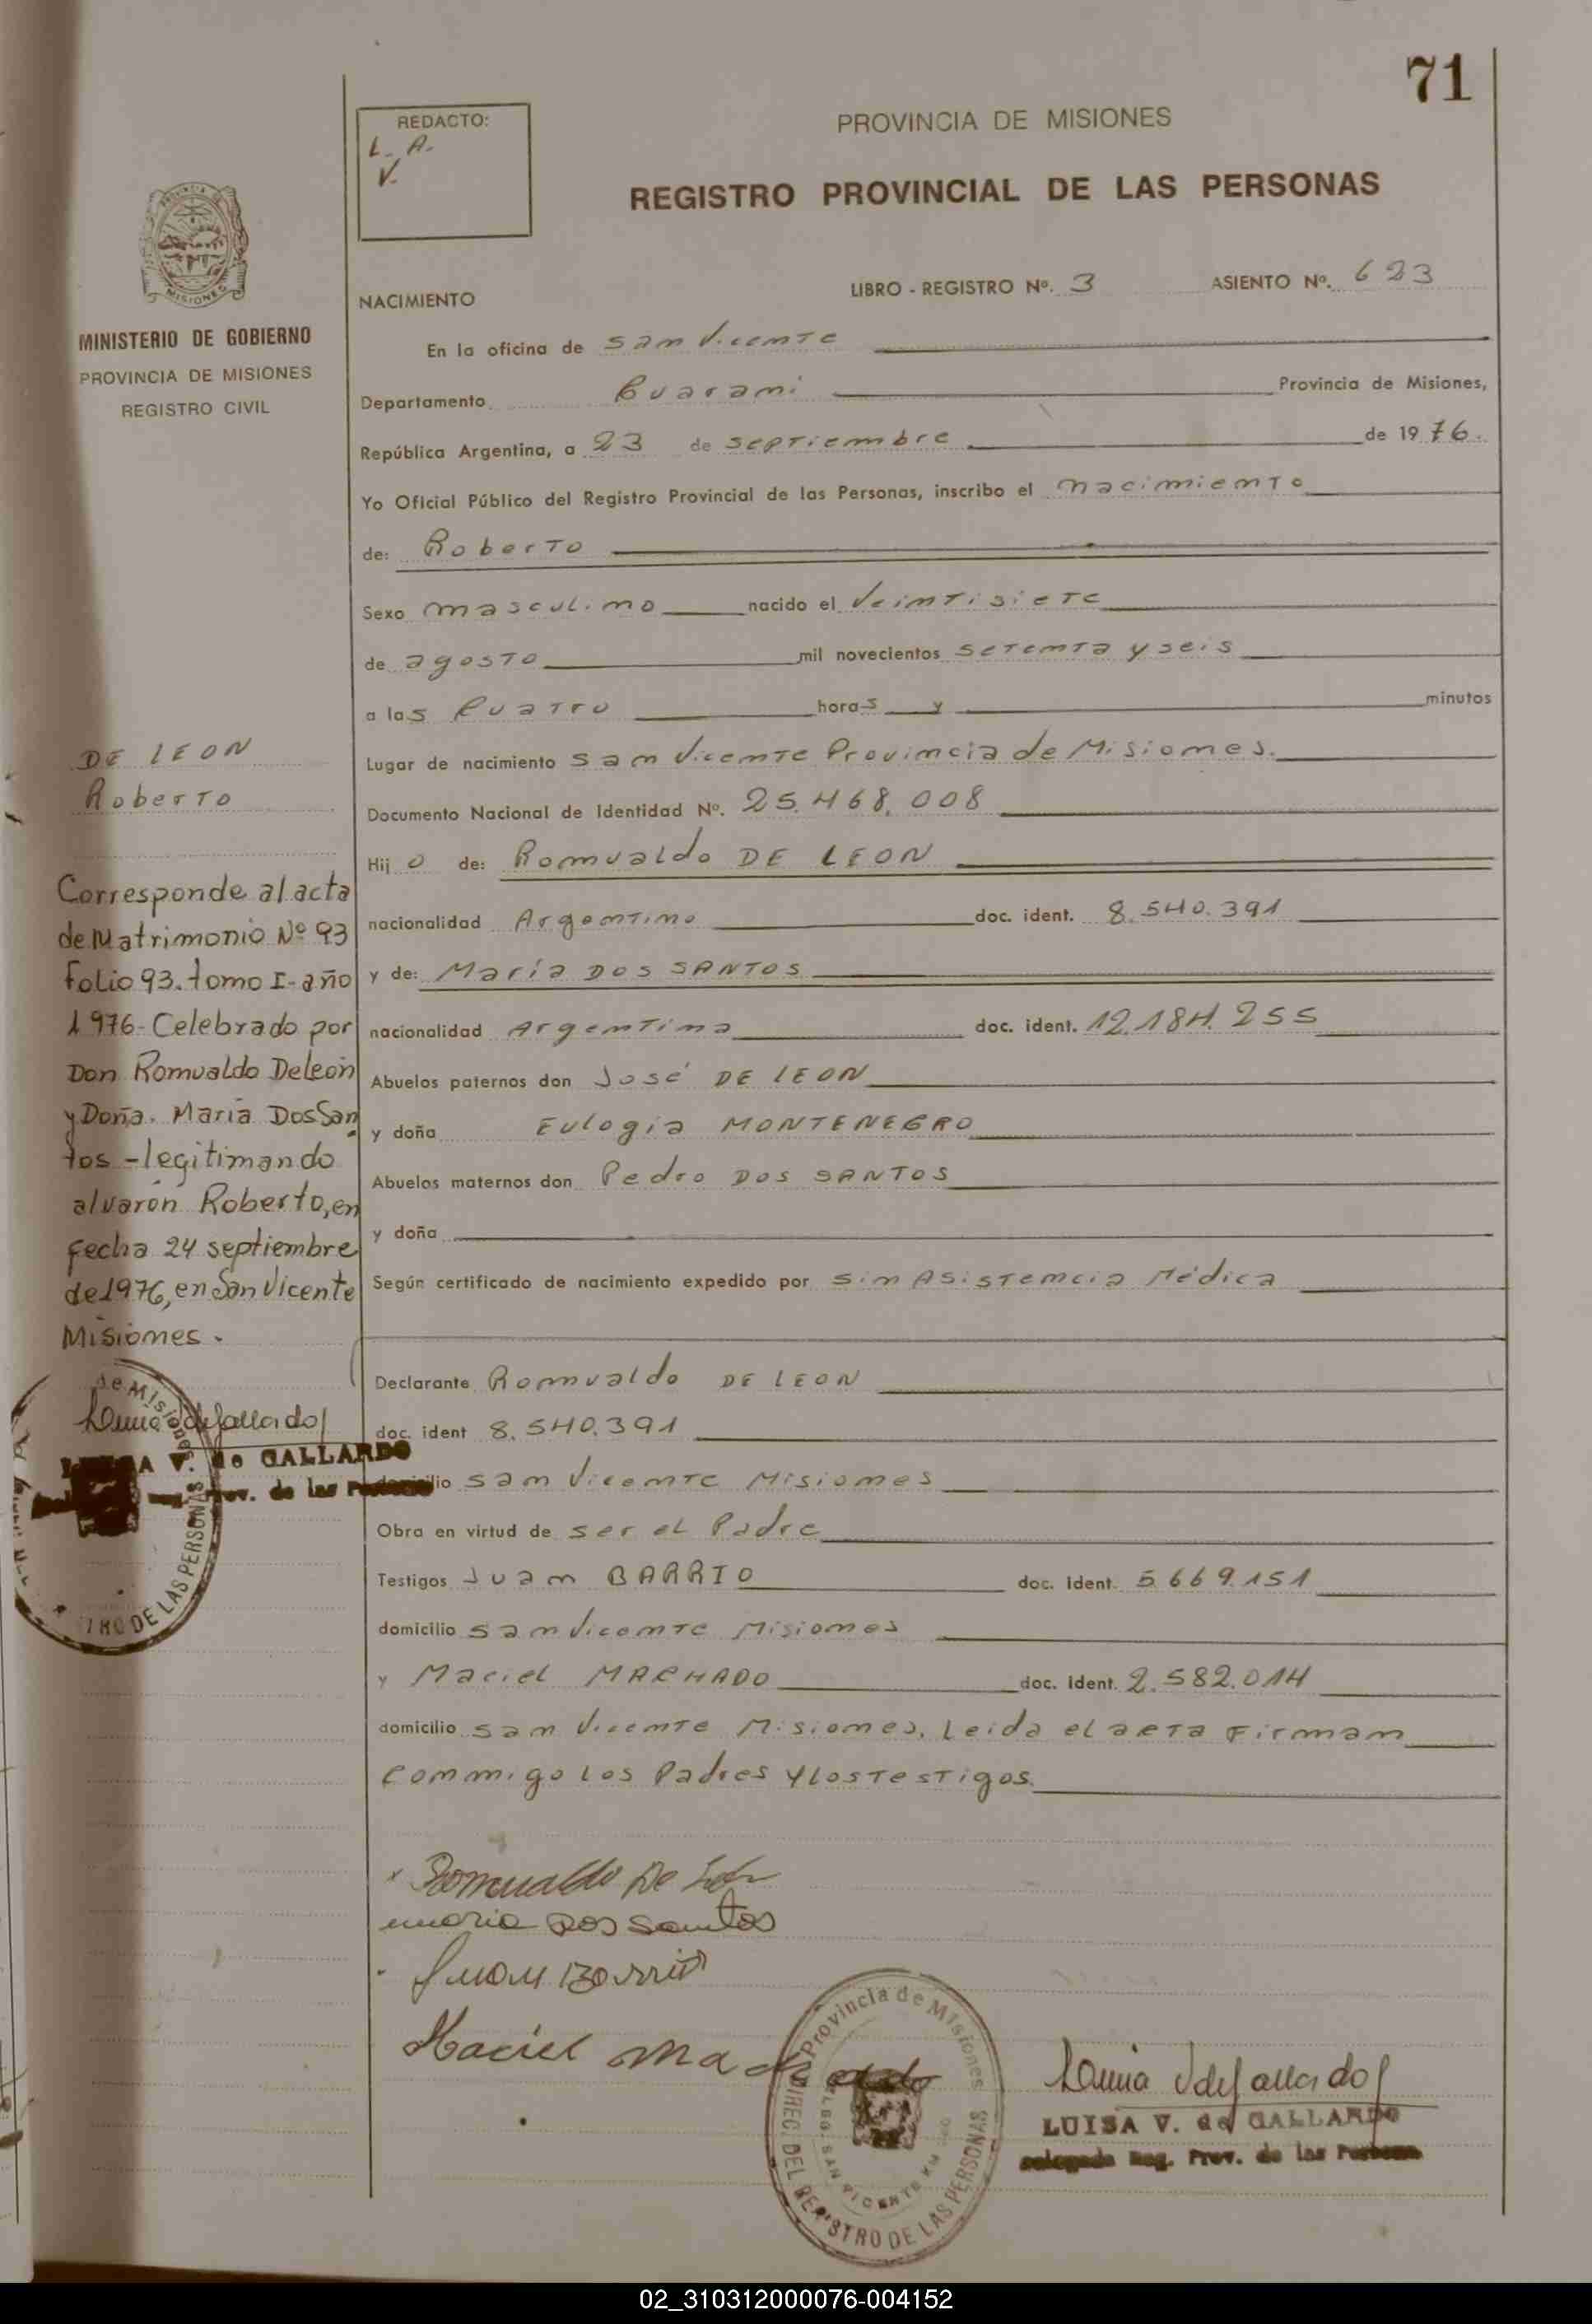 71
REDACTO:
L. A.
V.
PROVINCIA DE MISIONES
REGISTRO PROVINCIAL DE LAS PERSONAS
MISIONES
MINISTERIO DE GOBIERNO
PROVINCIA DE MISIONES
REGISTRO CIVIL
NACIMIENTO
LIBRO - REGISTRO Nº. 3 ASIENTO Nº. 623
En la oficina de San Vicente
Departamento Guarani Provincia de Misiones,
República Argentina, a 23 de septiembre de 1976.
Yo Oficial Público del Registro Provincial de las Personas, inscribo el nacimiento
de: Roberto
Sexo masculino nacido el Veintisiete
de agosto mil novecientos setenta y seis
a las Cuatro horas y minutos
Lugar de nacimiento San Vicente Provincia de Misiones.
Documento Nacional de Identidad Nº. 25.468.008
Hijo de: Romualdo DE LEON
nacionalidad Argentino doc. ident. 8.540.391
y de: María DOS SANTOS
nacionalidad Argentina doc. ident. 12.184.255
Abuelos paternos don José DE LEON
y doña Eulogia MONTENEGRO
Abuelos maternos don Pedro DOS SANTOS
y doña
Según certificado de nacimiento expedido por sin Asistencia Médica
Declarante Romualdo DE LEON
doc. ident 8.540.391
domicilio San Vicente Misiones
Obra en virtud de ser el Padre
Testigos Juan BARRIO doc. ident. 5.669.151
domicilio San Vicente Misiones
y Maciel MACHADO doc. ident. 2.582.014
domicilio San Vicente Misiones. Leida el acta Firman
conmigo los Padres y los Testigos.
DE LEON
Roberto
Corresponde al acta
de Matrimonio Nº 93
folio 93. tomo I- año
1976- Celebrado por
Don Romualdo Deleon
y Doña. María Dos San
tos - legitimando
al varón Roberto, en
fecha 24 septiembre
de 1976, en San Vicente
Misiones.
de Misiones
V. de GALLARDO
Prov. de las
TRO DE LAS PERSONAS
Romualdo De León
maria Dos Santos
Juan Barrio
Maciel Machado
Provincia de Misiones
DIREC. DEL REGISTRO DE LAS PERSONAS
SAN VICENTE KM
LUISA V. de GALLARDO
Delegada Reg. Prov. de las Personas
02_310312000076-004152